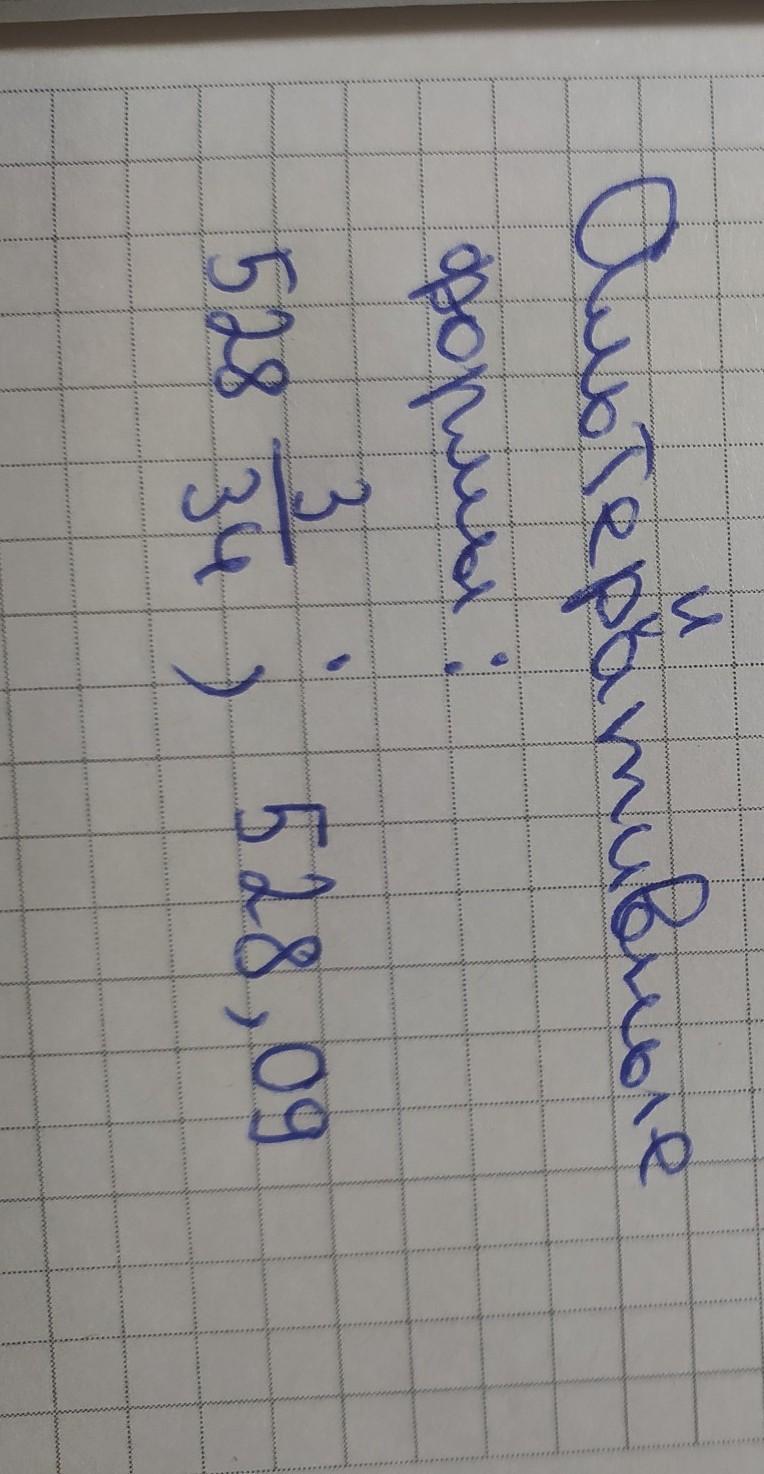 Альтернативные
формы:
528 3/34 ; 528,09